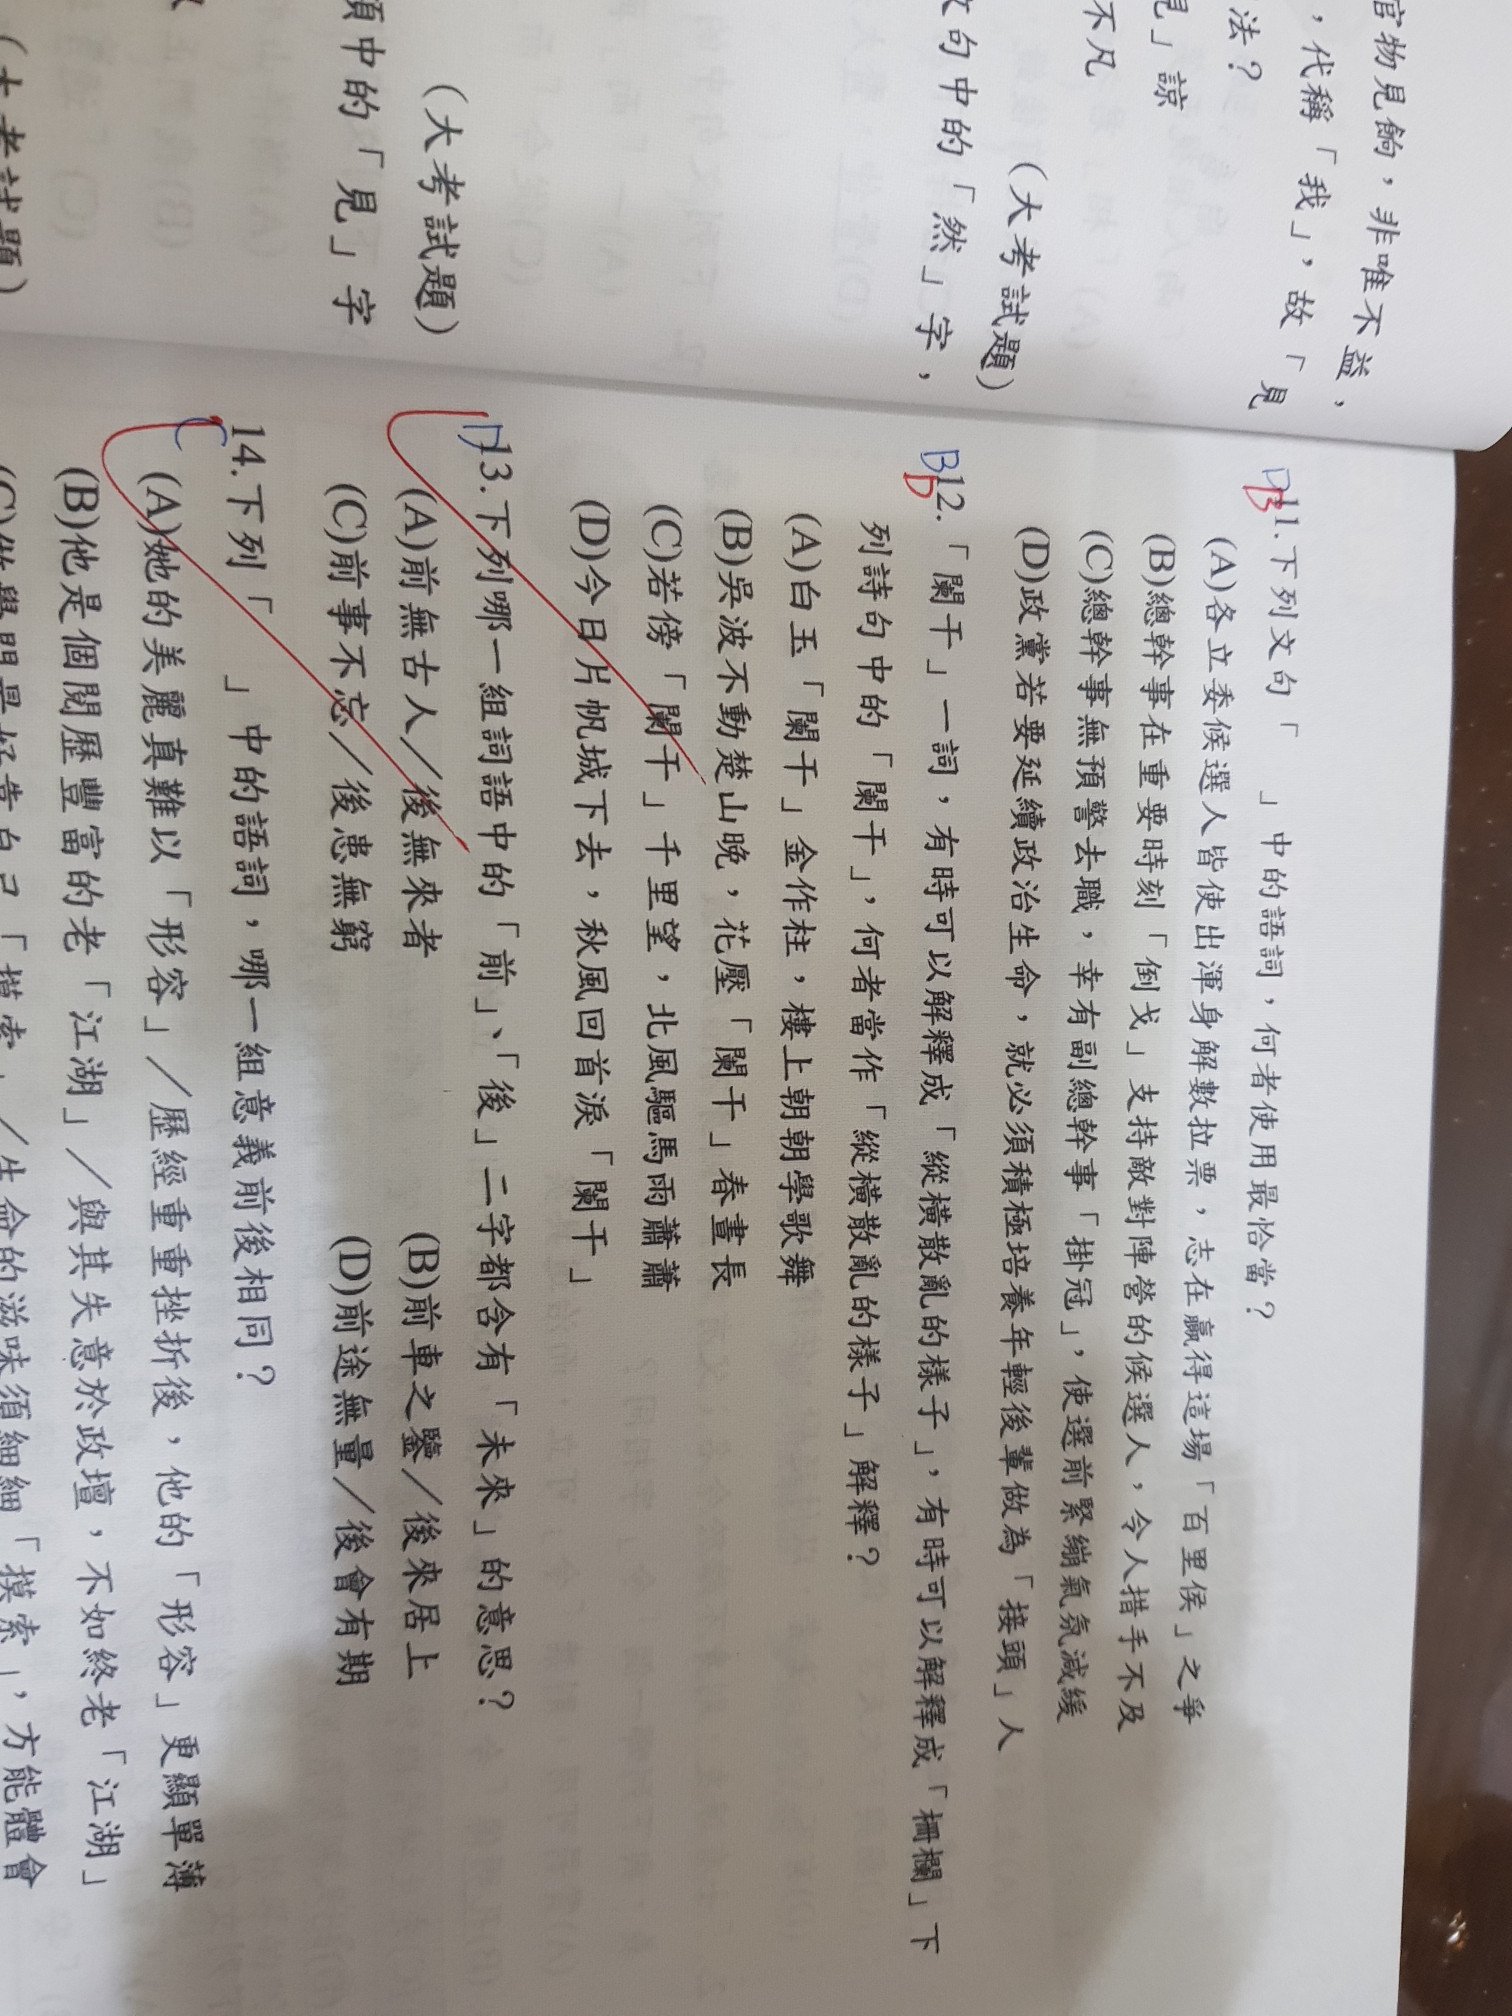 官物見餉，非唯不益，
，代稱「我」，故「見
法？
見」諒
不凡
（大考試題）
文句中的「然」字，
（大考試題）
項中的「見」字
（大考試題）
DB11.下列文句「　」中的語詞，何者使用最恰當？
(A)各立委候選人皆使出渾身解數拉票，志在贏得這場「百里侯」之爭
(B)總幹事在重要時刻「倒戈」支持敵對陣營的候選人，令人措手不及
(C)總幹事無預警去職，幸有副總幹事「掛冠」，使選前緊繃氣氛減緩
(D)政黨若要延續政治生命，就必須積極培養年輕後輩做為「接頭」人
BD12.「闌干」一詞，有時可以解釋成「縱橫散亂的樣子」，有時可以解釋成「柵欄」下
列詩句中的「闌干」，何者當作「縱橫散亂的樣子」解釋？
(A)白玉「闌干」金作柱，樓上朝朝學歌舞
(B)吳波不動楚山晚，花壓「闌干」春晝長
(C)若傍「闌干」千里望，北風驅馬雨蕭蕭
(D)今日片帆城下去，秋風回首淚「闌干」
D13.下列哪一組詞語中的「前」、「後」二字都含有「未來」的意思？
(A)前無古人／後無來者
(B)前車之鑒／後來居上
(C)前事不忘／後患無窮
(D)前途無量／後會有期
C14.下列「　」中的語詞，哪一組意義前後相同？
(A)她的美麗真難以「形容」／歷經重重挫折後，他的「形容」更顯單薄
(B)他是個閱歷豐富的老「江湖」／與其失意於政壇，不如終老「江湖」
(C)做學問最好靠自己「摸索」／生命的滋味須細細「摸索」，方能體會